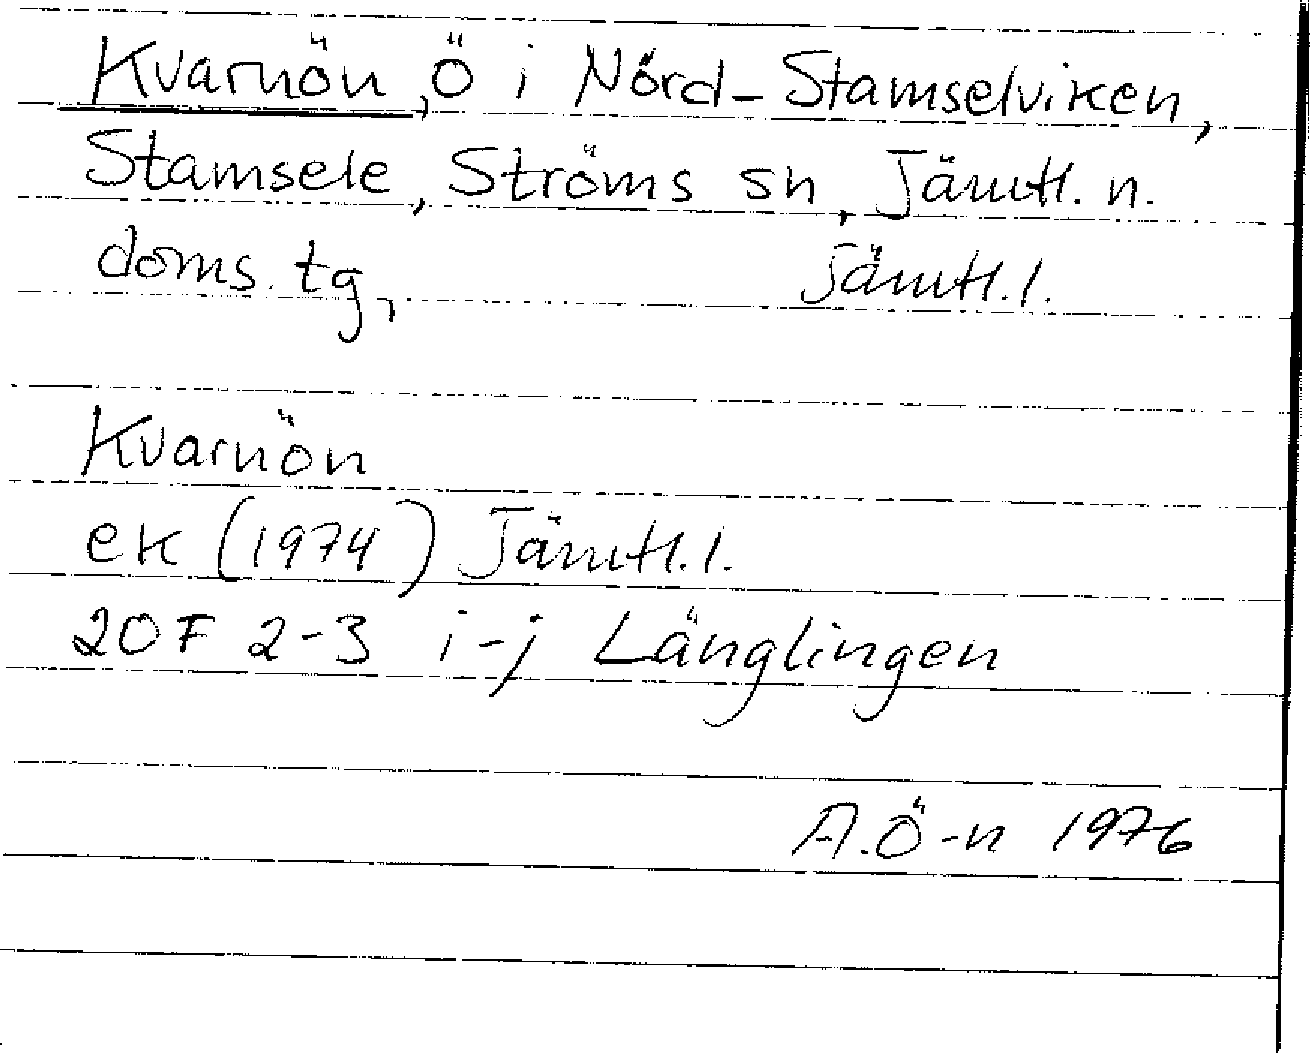 Kvarnön, Ö i Nörd-Stamselviken,
Stamsele, Ströms sn, Jämtl. n.
doms. tg, Jämtl. l.
Kvarnön
ek (1974) Jämtl. l.
20F 2-3 i-j Länglingen
A.Ö-n 1976